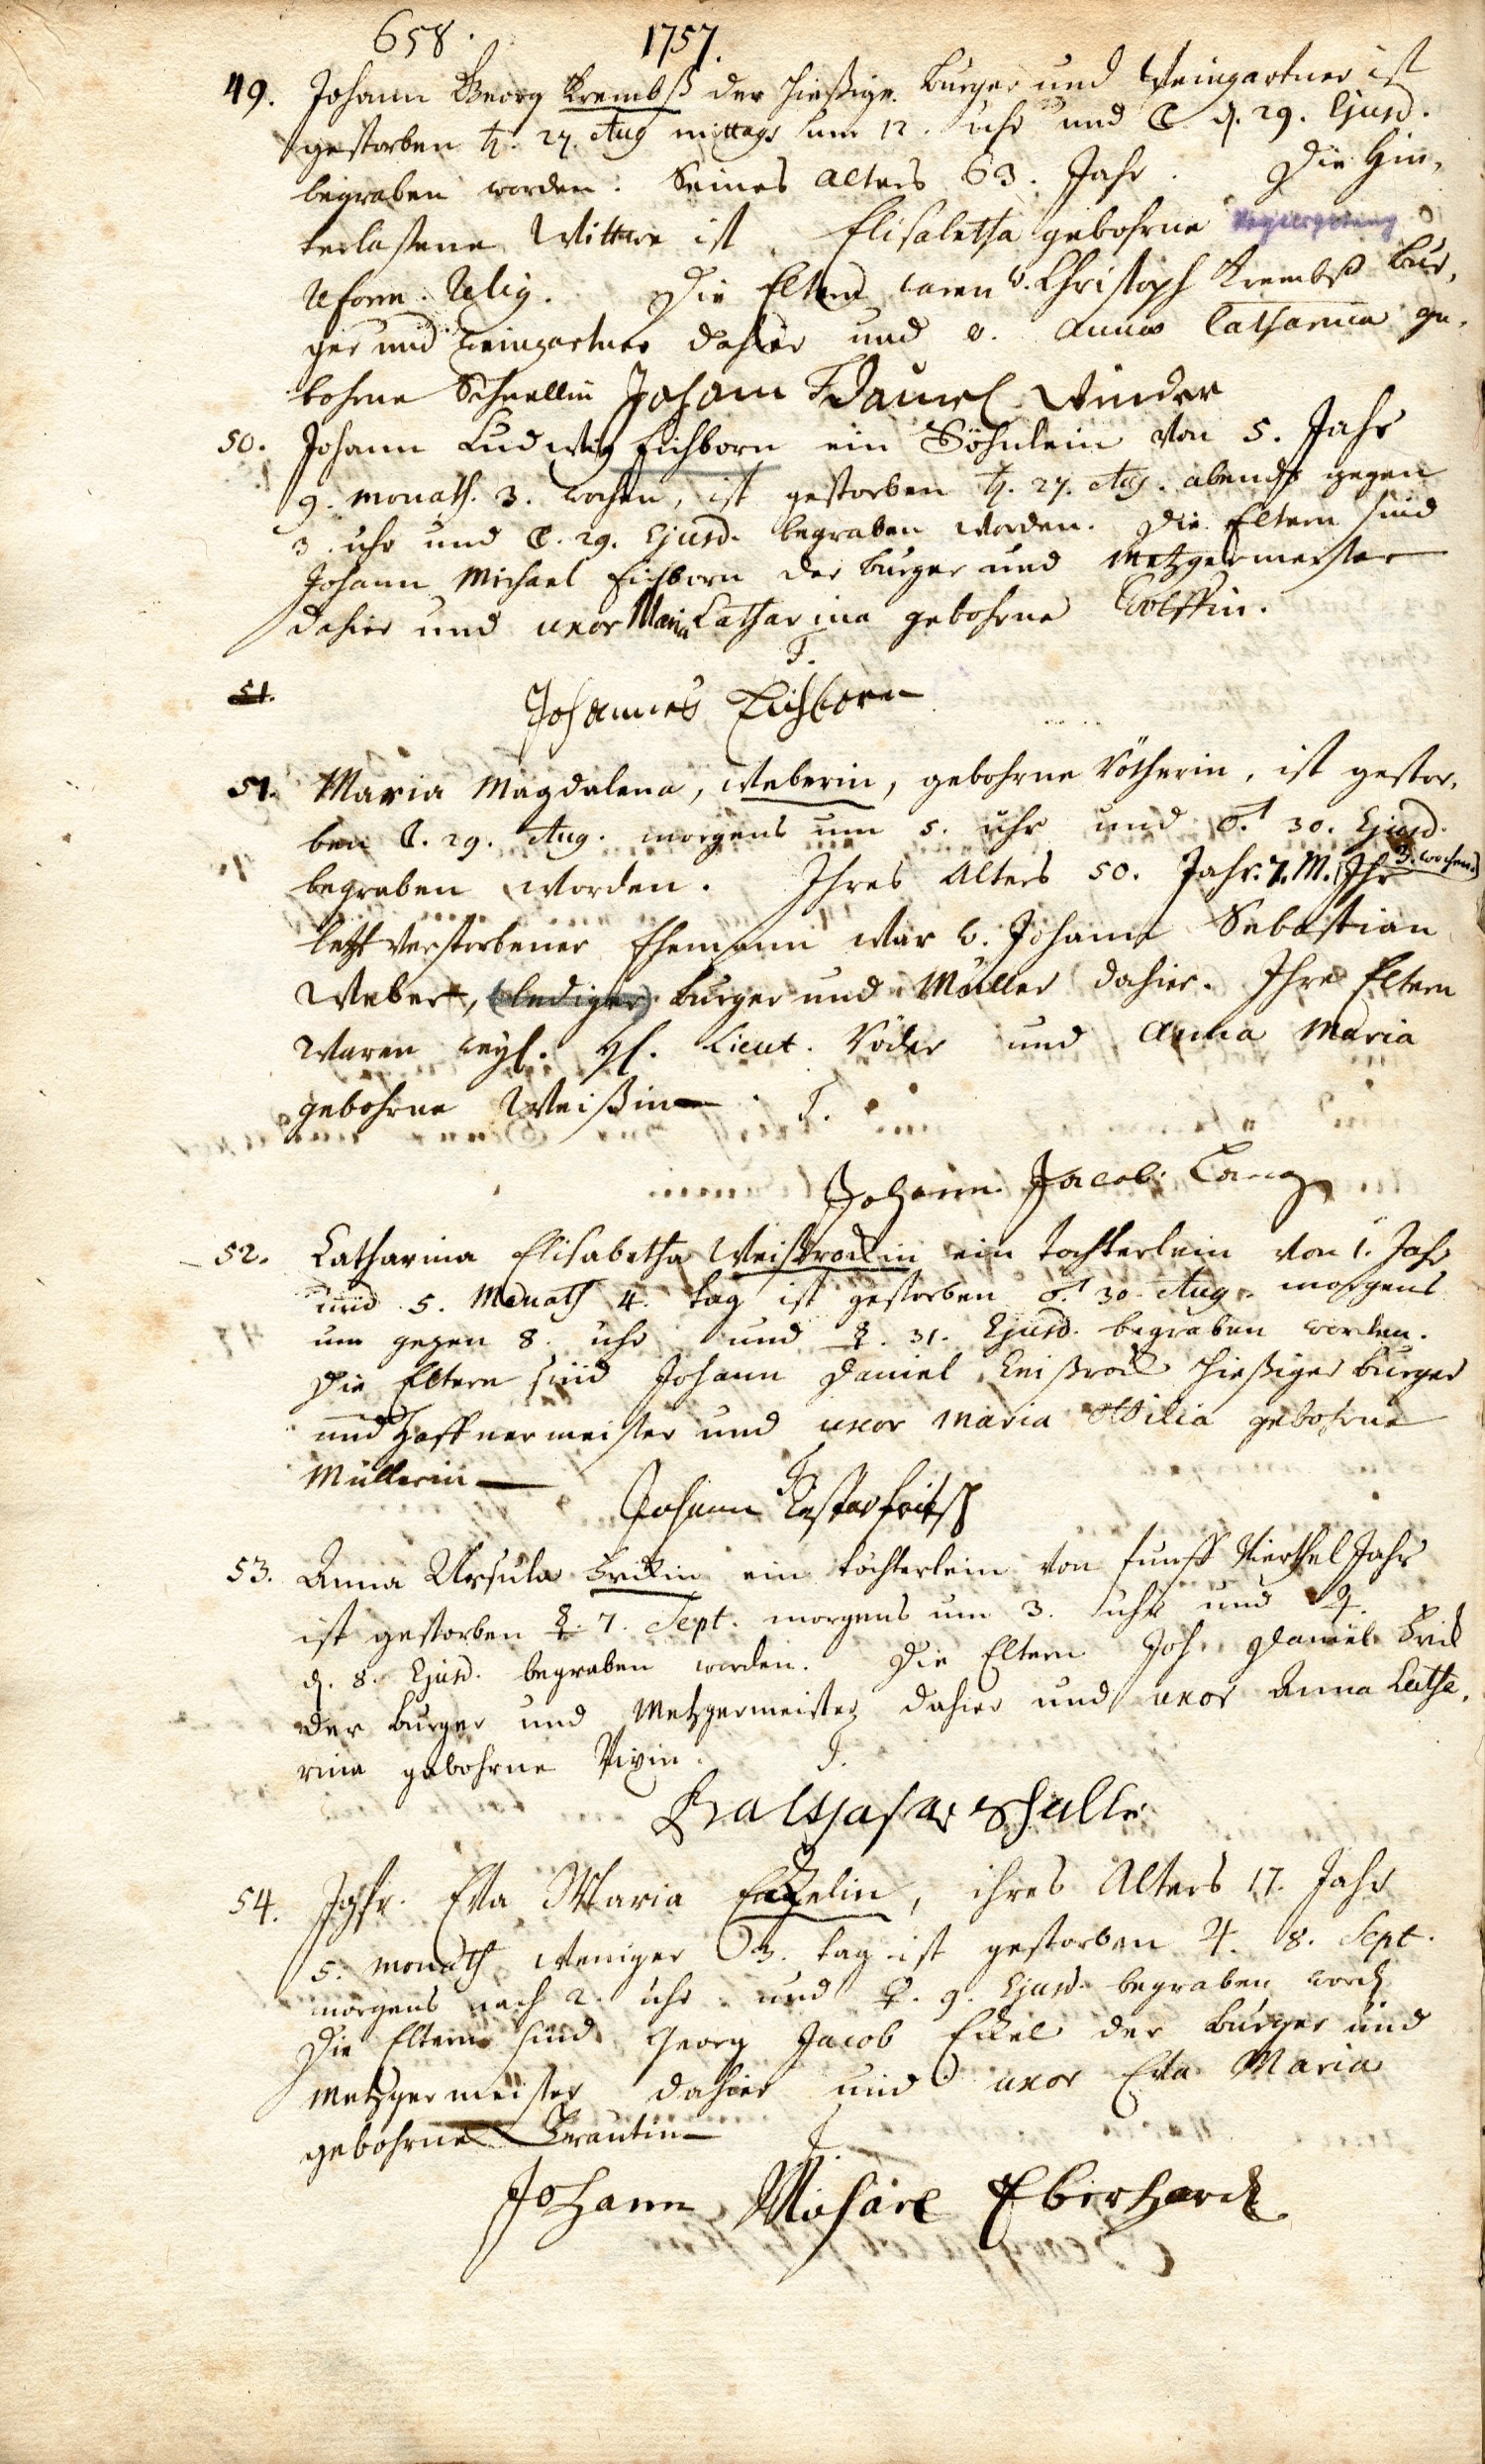 658. 1757.
49. Johann Georg Krembß der hießige Burger und Weingartner ist
gestorben ♄. 27. Aug mittags um 12. uhr und ☾. d. 29. Ejusd.
begraben worden. Seines alters 63. Jahr. Die Hin,
terlaßene Wittwe ist Elisabetha gebohrne
Reform. Relig. Die Eltern waren v. Christoph Krembß bur,
ger und weingartner dahier und v. Anna Catharina ge,
bohrne Schnellin Johann Daniel Winder
50. Johann Ludwig Eichborn ein Söhnlein von 5. Jahr
9. monath. 3. wochen, ist gestorben ♄. 27. Aug. abends gegen
3 uhr und ☾. 29. Ejusd. begraben worden. Die Eltern sind
Johann Michael Eichborn der burger und Metzgermeister
dahier und uxor Maria Catharina gebohrne Wolffin.
T.
51. Johannes Eichborn
51. Maria Magdalena, Weberin, gebohrne Rötherin, ist gestor,
ben ☾. 29. Aug. morgens um 5. uhr und ♂. 30. Ejusd.
begraben worden. Ihres Alters 50. Jahr. 7. M. 3. wochen. Ihr
letzt verstorbener Ehemann war v. Johann Sebastian
Weber, (lediger) burger und Müller dahier. Ihre Eltern
waren weyl. H. Lieut. Röder und Anna Maria
gebohrne Weißin T.
Johann Jacob Lang
52. Catharina Elisabetha Weißrockin ein tochterlein von 1. Jahr
und 5. Monath 4. tag ist gestorben ♂. 30. Aug. morgens
um gegen 8. uhr und ☿. 31. Ejusd. begraben worden.
Die Eltern sind Johann Daniel Weißrock hießiger burger
und Haffnermeister und uxor Maria Ottilia gebohrne
Müllerin T.
Johann
53. Anna Ursula Brickin ein töchterlein von funff Vierthel Jahr
ist gestorben ☿. 7. Sept. morgens um 3. uhr und ♃.
d. 8. Ejusd. begraben worden. Die Eltern Joh. Daniel Brick
der burger und Metzgermeister dahier und uxor Anna Catha,
rina gebohrne T.
Balthasar Schalle
54. Jgfr. Eva Maria Eckelin, ihres Alters 17. Jahr
5. monath weniger 3. tag ist gestorben ♃. 8. Sept.
morgens nach 2. uhr und ♀. 9. Ejusd. begraben word
Die Eltern sind Georg Jacob Eckel der burger und
Metzgermeister dahier und uxor Eva Maria
gebohrne Krautin T.
Johann Michael Eberhard